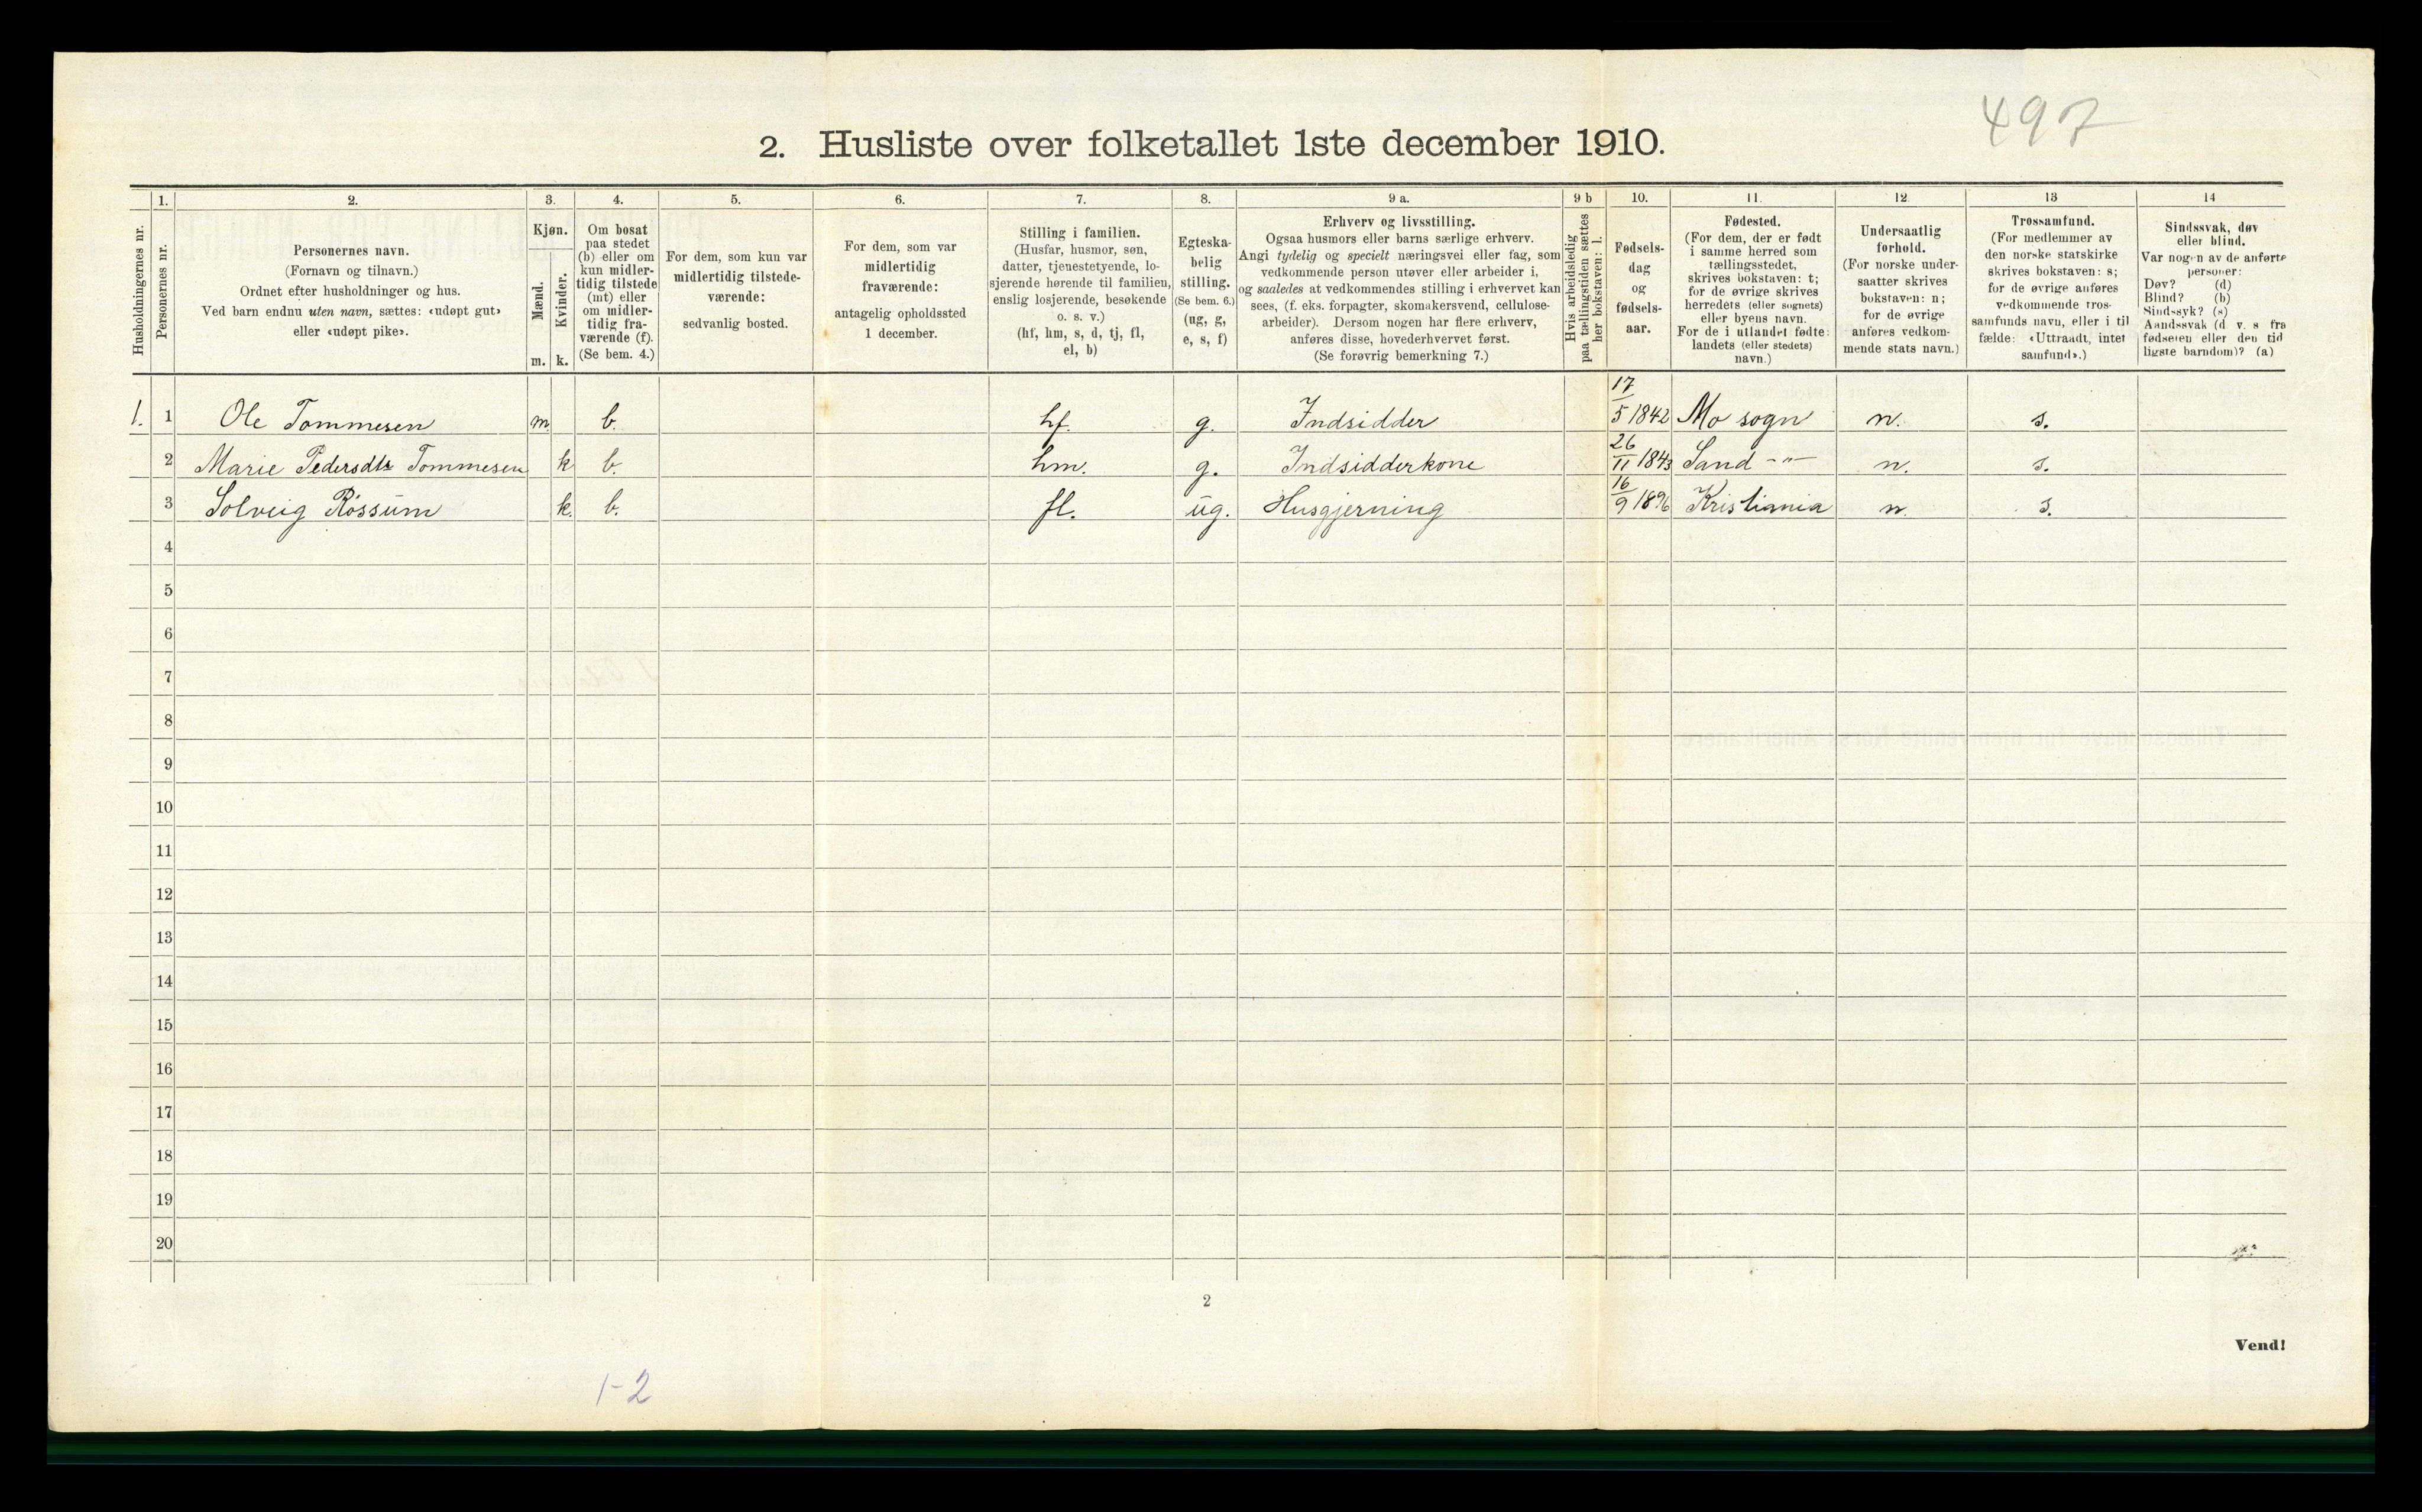 497
2. Husliste over folketallet 1ste december 1910.
Husholdningernes nr.
1.
Personernes nr.
2.
Personernes navn.
(Fornavn og tilnavn.)
Ordnet efter husholdninger og hus.
Ved barn endnu uten navn, sættes: «udøpt gut»
eller «udøpt pike».
3.
Kjøn.
Mænd.
m.
Kvinder.
k.
4.
Om bosat
paa stedet
(b) eller om
kun midler-
tidig tilstede
(mt) eller
om midler-
tidig fra-
værende (f).
(Se bem. 4.)
5.
For dem, som kun var
midlertidig tilstede-
værende:
sedvanlig bosted.
6.
For dem, som var
midlertidig
fraværende:
antagelig opholdssted
1 december.
7.
Stilling i familien.
(Husfar, husmor, søn,
datter, tjenestetyende, lo-
sjerende hørende til familien,
enslig losjerende, besøkende
o. s. v.)
(hf, hm, s, d, tj, fl,
el, b)
8.
Egteska-
belig
stilling.
(Se bem. 6.)
(ug, g,
e, s, f)
9 a.
Erhverv og livsstilling.
Ogsaa husmors eller barns særlige erhverv.
Angi tydelig og specielt næringsvei eller fag, som
vedkommende person utøver eller arbeider i,
og saaledes at vedkommendes stilling i erhvervet kan
sees, (f. eks. forpagter, skomakersvend, cellulose-
arbeider). Dersom nogen har flere erhverv,
anføres disse, hovederhvervet først.
(Se forøvrig bemerkning 7.)
9 b
Hvis arbeidsledig
paa tællingstiden sættes
her bokstaven: l.
10.
Fødsels-
dag
og
fødsels-
aar.
11.
Fødested.
(For dem, der er født
i samme herred som
tællingsstedet,
skrives bokstaven: t;
for de øvrige skrives
herredets (eller sognets)
eller byens navn.
For de i utlandet fødte:
landets (eller stedets)
navn.)
12.
Undersaatlig
forhold.
(For norske under-
saatter skrives
bokstaven: n;
for de øvrige
anføres vedkom-
mende stats navn.)
13
Trossamfund.
(For medlemmer av
den norske statskirke
skrives bokstaven: s;
for de øvrige anføres
vedkommende tros-
samfunds navn, eller i til
fælde: «Uttraadt, intet
samfund».)
14
Sindssvak, døv
eller blind.
Var nogen av de anførte
personer:
Døv? (d)
Blind? (b)
Sindssyk? (s)
Aandssvak (d. v. s. fra
fødselen eller den tid
ligste barndom)? (a)
1. 1 Ole Tommesen m. b. hf. g. Indsidder 17/5 1842 Mo sogn n. s.
2 Marie Pedersdtr Tommesen k b. hm. g. Indsidderkone 26/11 1843 Sand -"- n. s.
3 Solveig Røssum k. b. fl. ug. Husgjerning 16/9 1896 Kristiania n. s.
4
5
6
7
8
9
10
11
12
13
14
15
16
17
18
19
20
2
Vend!
1-2